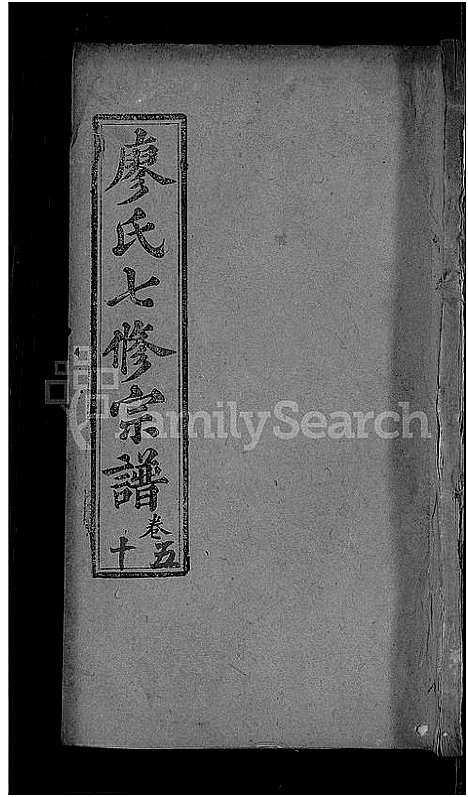 廖氏七修宗譜
卷五
十
FamilySearch